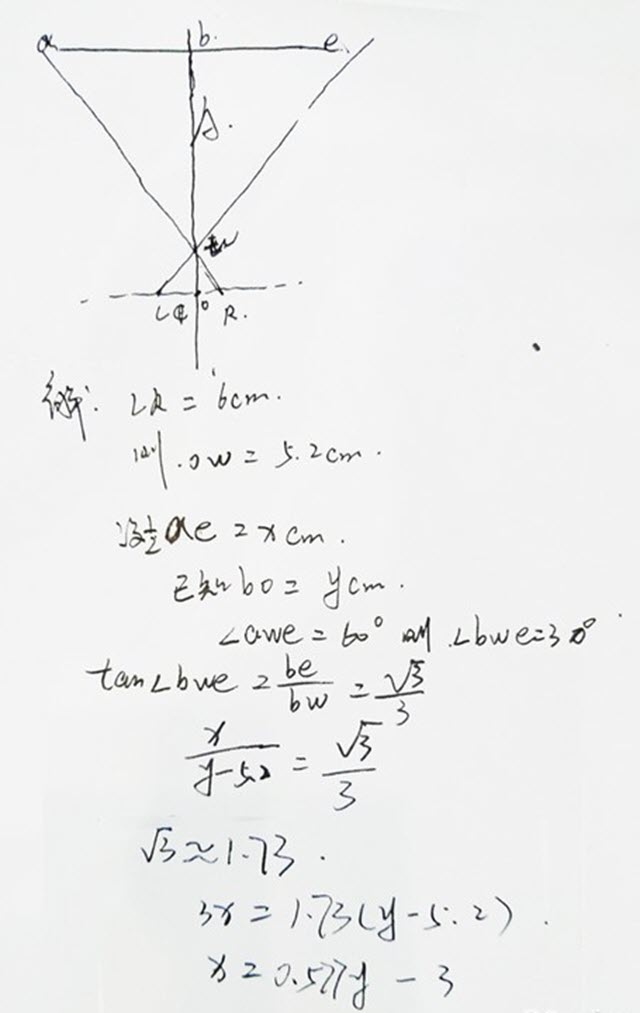 a b. e
S.
w
L O R.
解: LR = 6cm.
则.ow = 5.2cm.
设ae = xcm.
已知bo = ycm.
∠awe = 60° 则.∠bwe=30°
tan∠bwe = be/bw = √3/3
x/(y-5.2) = √3/3
√3≈1.73.
3x = 1.73(y-5.2).
x = 0.577y - 3